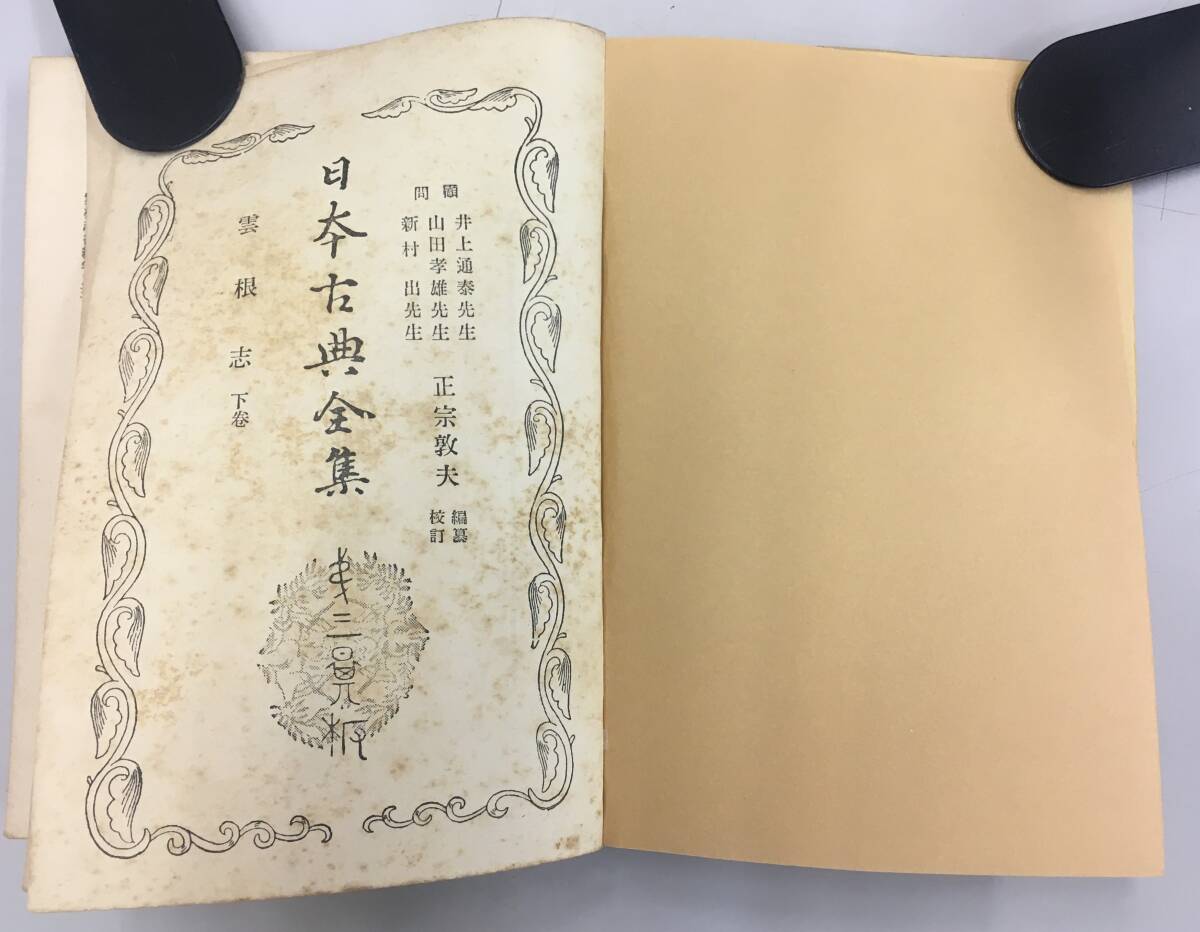 顧問
井上通泰先生
山田孝雄先生
新村出先生
正宗敦夫
編纂
校訂
日本古典全集
雲根志 下卷